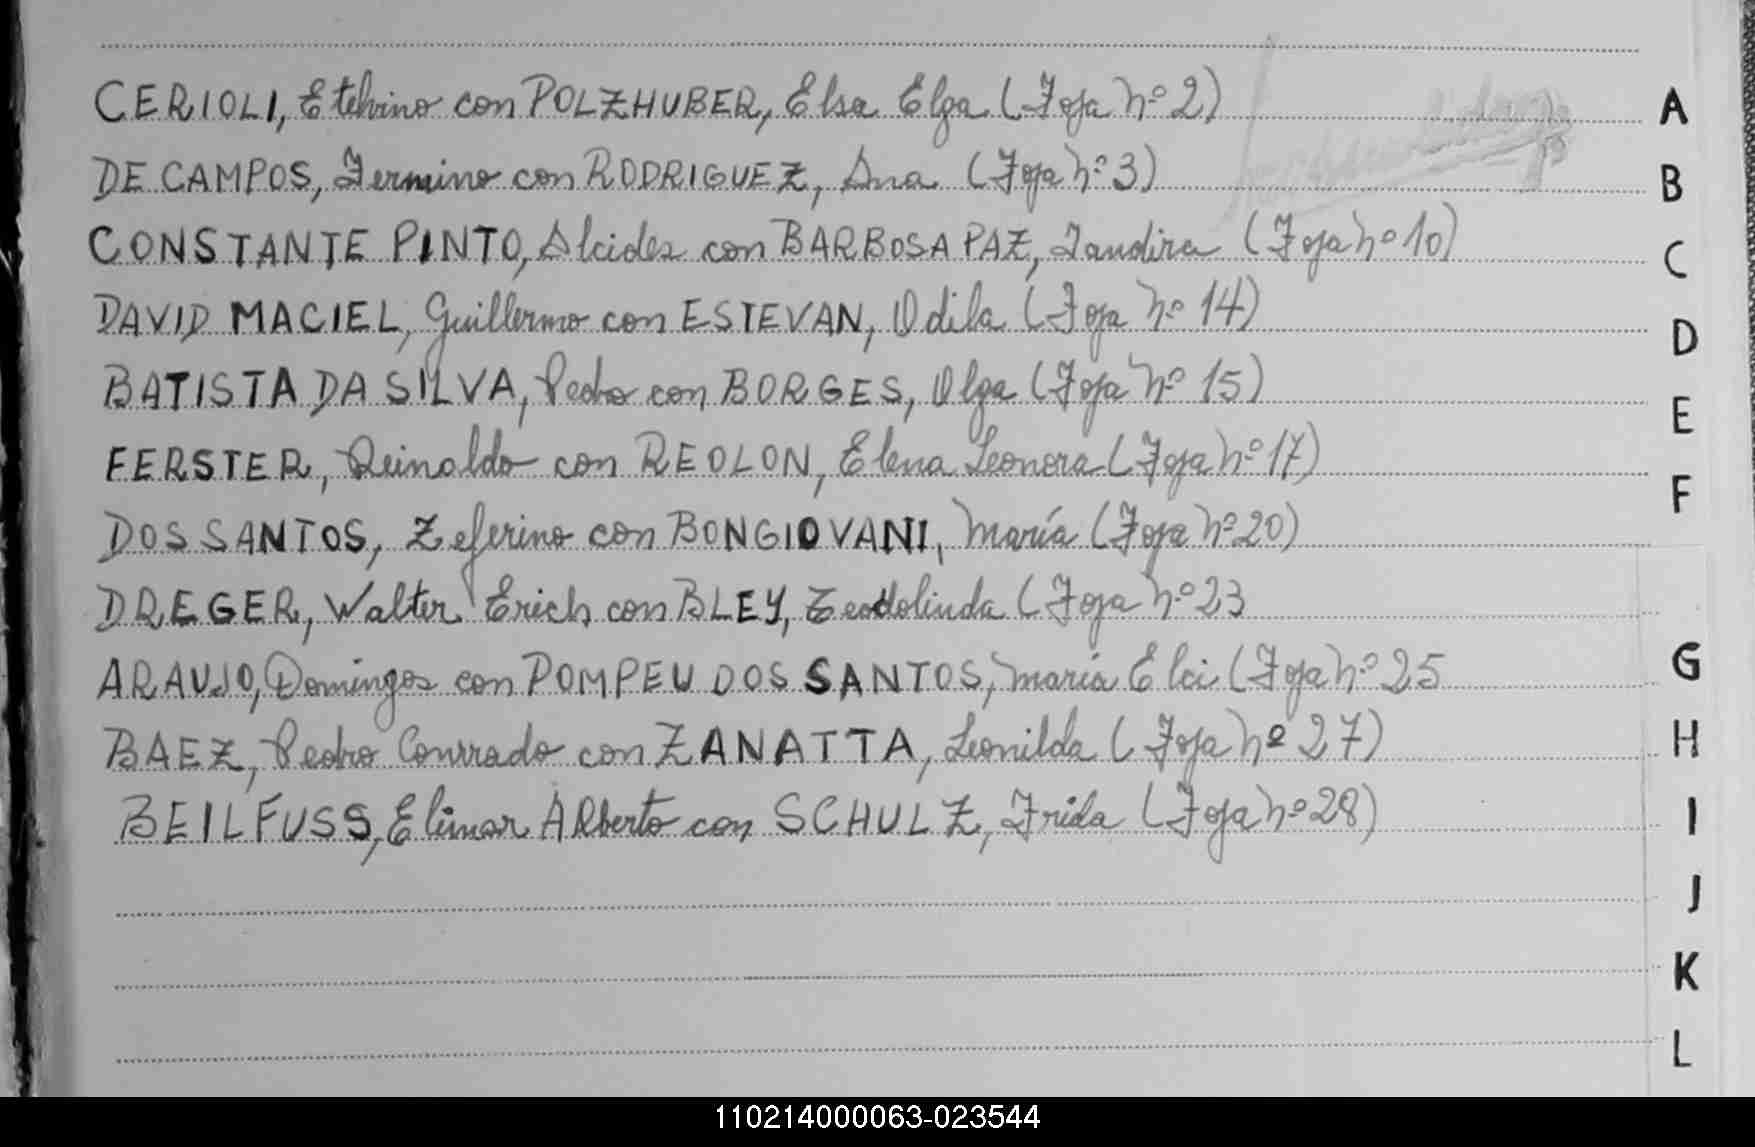 CERIOLI, Etelvino con POLZHUBER, Elsa Elga (Foja nº 2)
DE CAMPOS, Fermino con RODRIGUEZ, Ana (Foja nº 3)
CONSTANTE PINTO, Alcides con BARBOSA PAZ, Jandira (Foja nº 10)
DAVID MACIEL, Guillermo con ESTEVAN, Odila (Foja nº 14)
BATISTA DA SILVA, Pedro con BORGES, Olga (Foja nº 15)
FERSTER, Reinaldo con REOLON, Elena Leonora (Foja nº 17)
DOS SANTOS, Zeferino con BONGIOVANI, María (Foja nº 20)
DREGER, Walter Erich con BLEY, Teodolinda (Foja nº 23
ARAUJO, Domingos con POMPEU DOS SANTOS, María Elci (Foja nº 25
BAEZ, Pedro Conrrado con ZANATTA, Leonilda (Foja nº 27)
BEILFUSS, Elimar Alberto con SCHULZ, Frida (Foja nº 28)
A
B
C
D
E
F
G
H
I
J
K
L
110214000063-023544